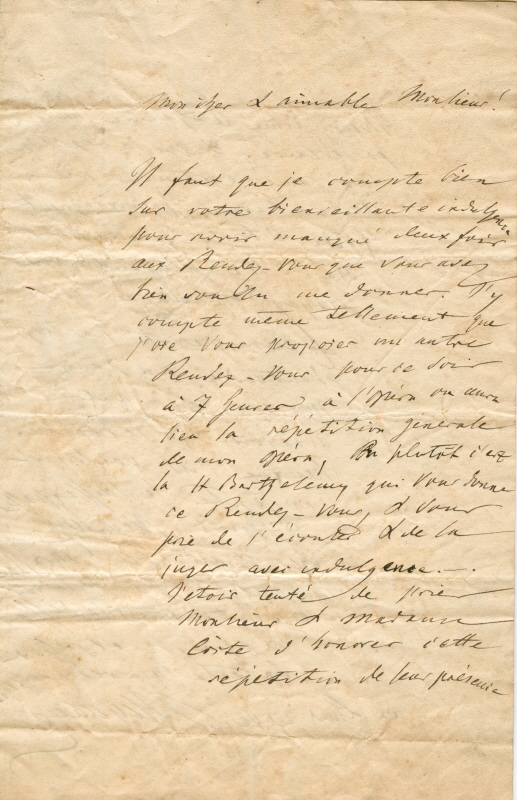 Mon cher & aimable Monsieur!
Il faut que je compte bien
sur votre bienveillante indulgence
pour avoir manqué deux fois
aux Rendez-vous que vous avez
bien voulu me donner. J'y
compte même tellement que
j'ose vous proposer un autre
Rendez-vous pour ce soir
à 7 heures à l'opéra où aura
lieu la répétition générale
de mon opéra, ou plutot c'est
la St Barthélémy qui vous donne
ce Rendez-vous, & vous
prie de l'écouter & de la
juger avec indulgence.—.
J'étois tenté de prier
Monsieur & Madame
Coste d'honorer cette
répétition de leur présence